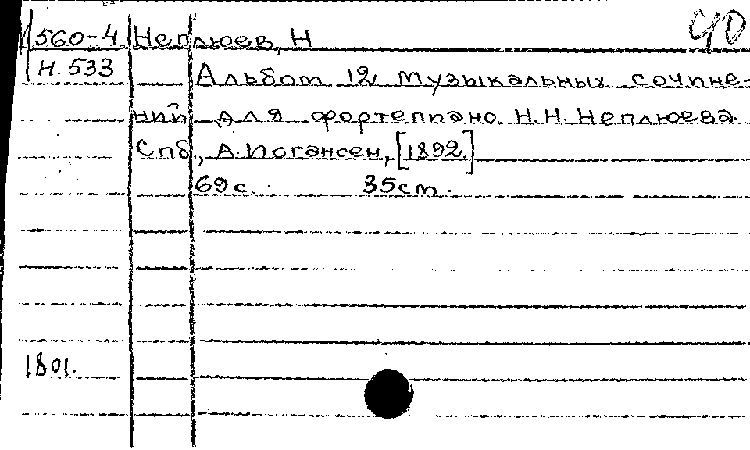 560-4 Неплюев, Н
Н. 533 Альбом 12 музыкальных сочине-
ний для фортепиано Н.Н. Неплюева
Спб., А. Иогансен, [1892.]
69 с. 35 cm.